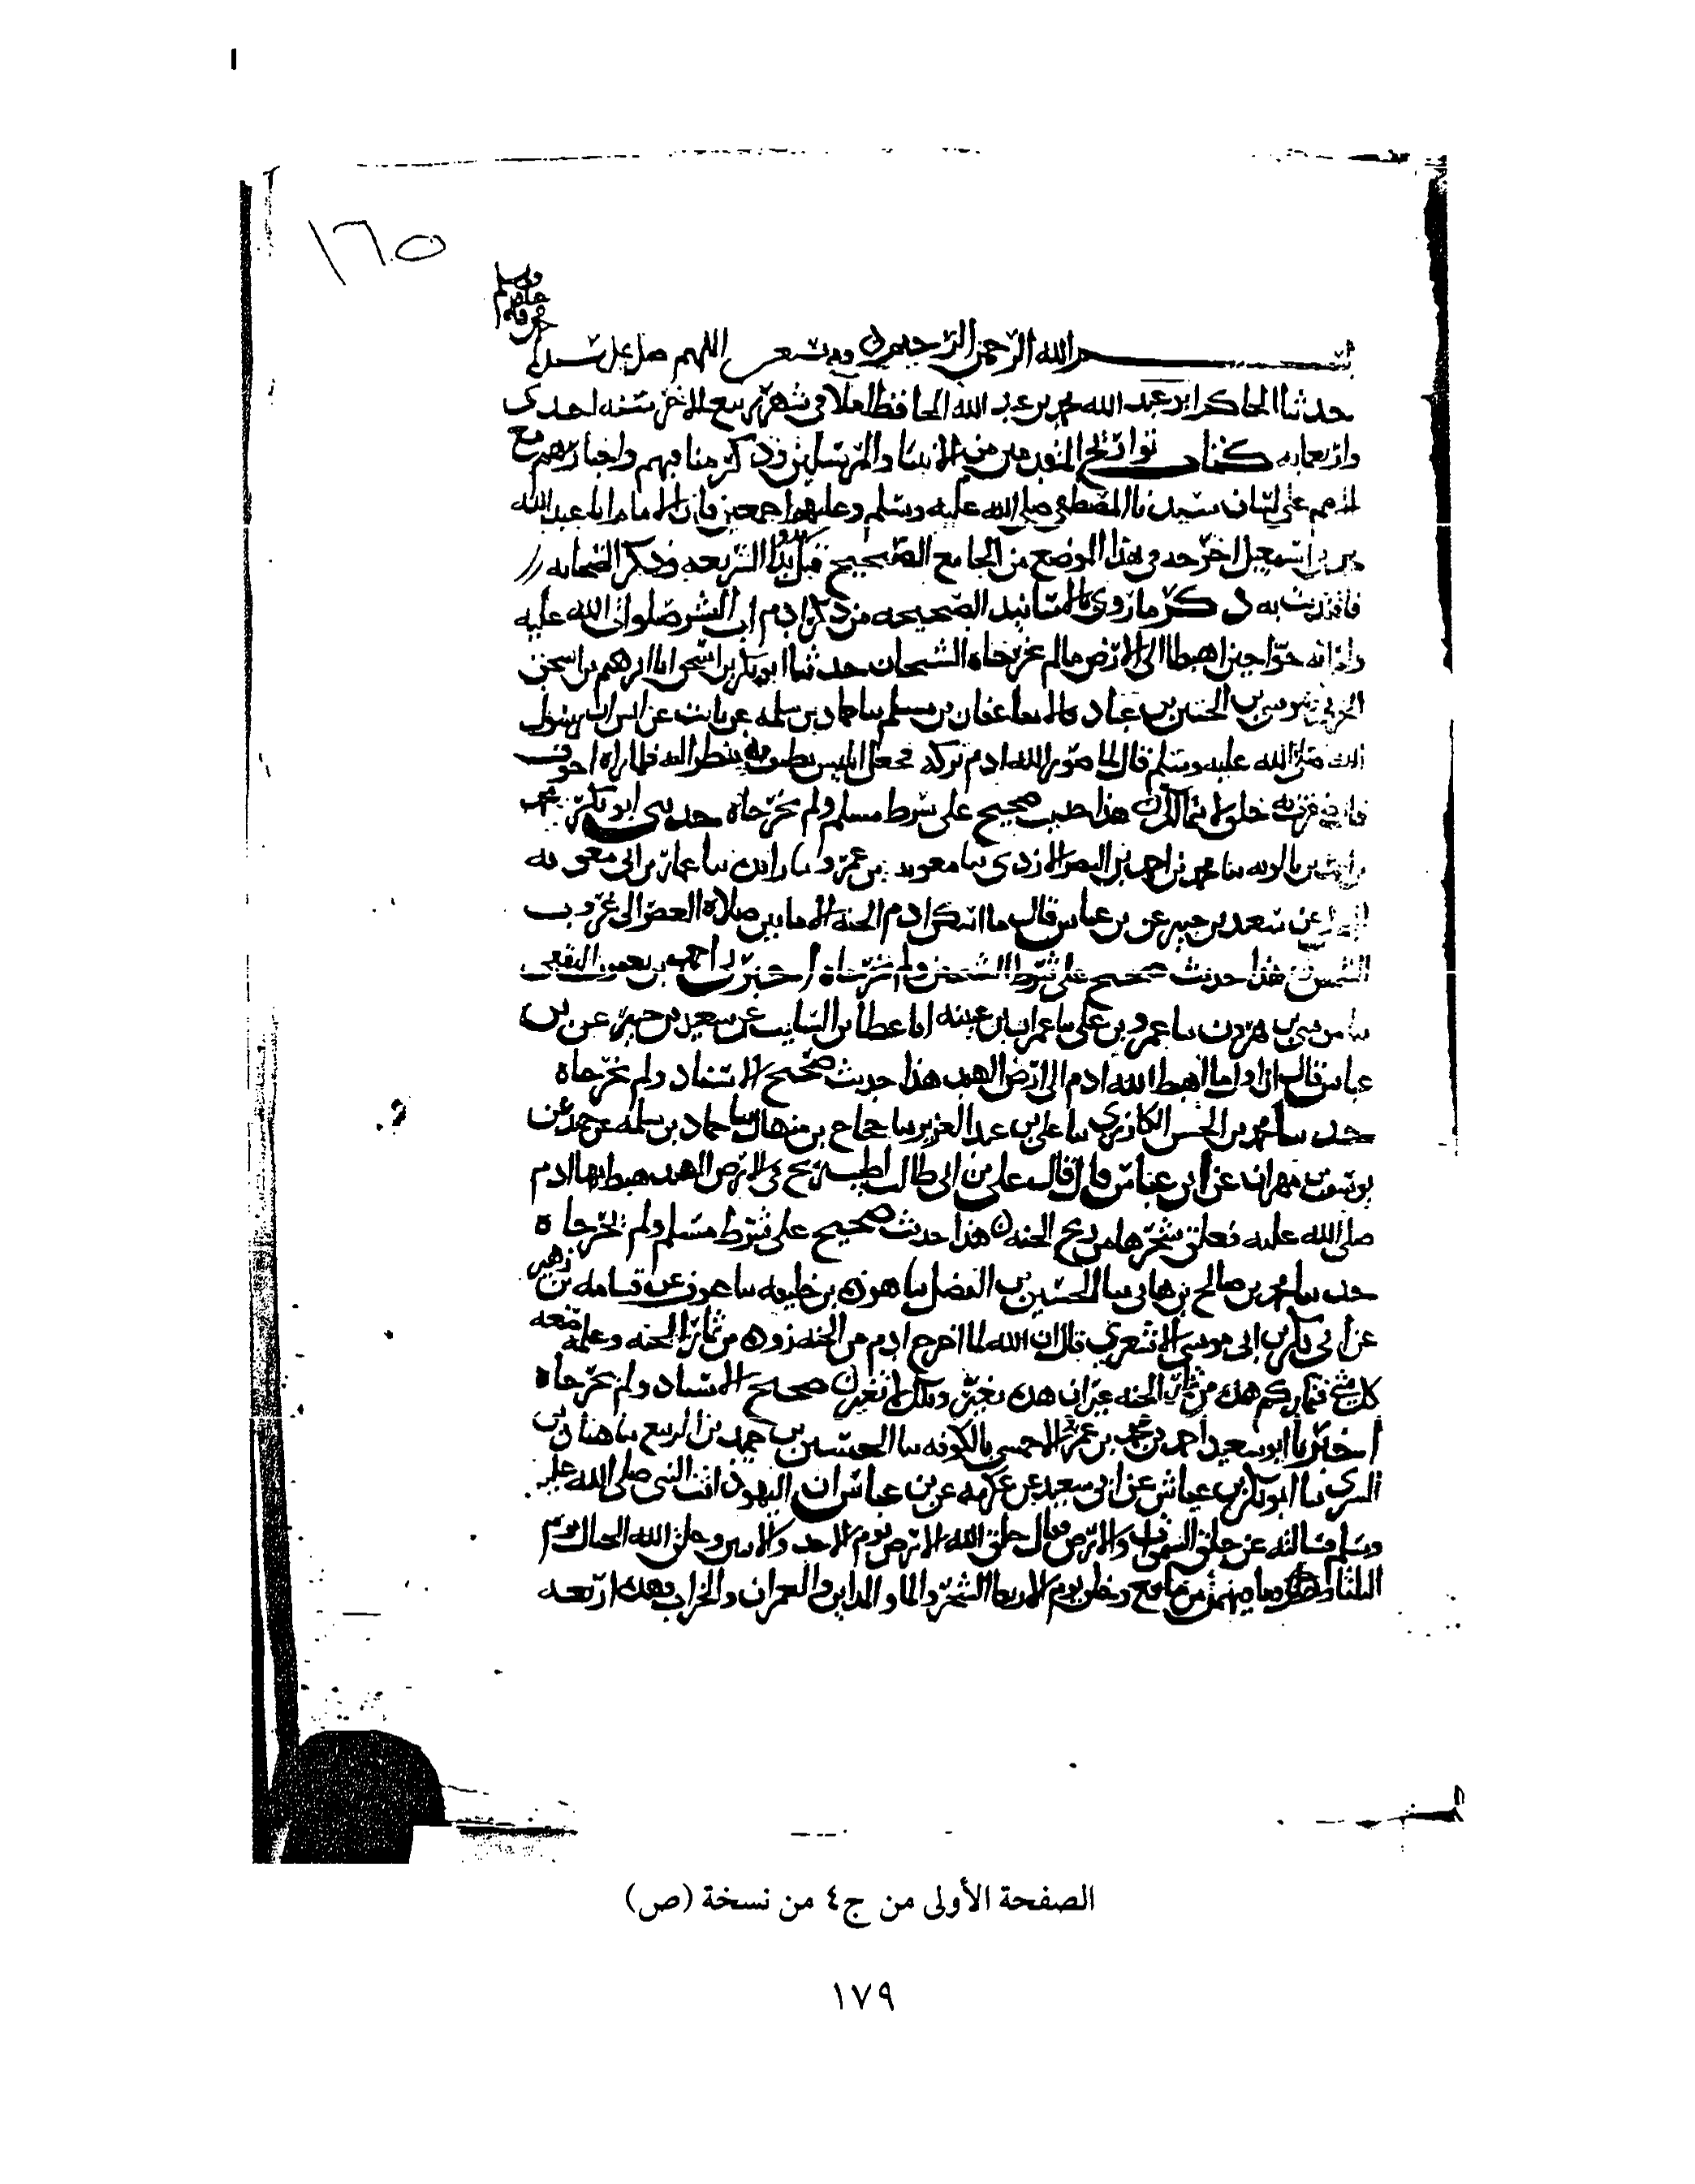 ١٦٥
بسم الله الرحمن الرحيم وبه نستعين اللهم صل على سيدنا
محمد واله وسلم
حدثنا الحاكم ابو عبد الله محمد بن عبد الله الحافظ املا في شهر ربيع الاخر سنه احدى
واربعمايه كتاب تواريخ المتقدمين من الانبيا والمرسلين وذكر مناقبهم واخبارهم مع
اممهم على لسان سيدنا المصطفى صلى الله عليه وسلم وعليهم اجمعين فان الامام ابا عبد الله
محمد بن اسمعيل اخرجه في هذا الموضع من الجامع الصحيح قبل بدو الشريعه وذكر الصحابه
فاقتديت به ذكر ما روي بالاسانيد الصحيحه من ذكر ادم ابي البشر صلوات الله عليه
وامراته حوا حين اهبطا الى الارض مما لم يخرجاه الشيخان حدثنا ابو بكر بن اسحق ابا ابرهيم بن اسحق
الحربي وموسى بن الحسن بن عباد قالا ثنا عفان بن مسلم ثنا حماد بن سلمه عن ثابت عن انس ان رسول
الله صلى الله عليه وسلم قال لما صور الله ادم تركه فجعل ابليس يطيف به ينظر اليه فلما راه اجوف
قال خلق لا يتمالك هذا حديث صحيح على شرط مسلم ولم يخرجاه حدثني ابو بكر محمد
بن بالويه ثنا محمد بن احمد بن النضر الازدي ثنا معويه بن عمرو ثنا زايده ثنا عمار بن ابي معويه
عن سعيد بن جبير عن بن عباس قال ما اسكن ادم الجنه الا ما بين صلاه العصر الى غروب
الشمس هذا حديث صحيح على شرط الشيخين ولم يخرجاه اخبرنا احمد بن يعقوب الثقفي
ثنا موسى بن هرون ثنا عمرو بن علي ثنا عمران بن عيينه ابا عطا بن السايب عن سعيد بن جبير عن بن
عباس قال ان اول ما اهبط الله ادم الى ارض الهند هذا حديث صحيح الاسناد ولم يخرجاه
حدثنا محمد بن الحسن الكارزي ثنا علي بن عبد العزيز ثنا حجاج بن منهال ثنا حماد بن سلمه عن حميد عن
يوسف بن مهران عن ابن عباس قال قال علي بن ابي طالب اطيب ريح في الارض الهند هبط بها ادم
صلى الله عليه فعلق شجرها من ريح الجنه هذا حديث صحيح على شرط مسلم ولم يخرجاه
حدثنا محمد بن صالح بن هاني ثنا الحسين بن الفضل ثنا هوذه بن خليفه ثنا عوف عن قسامه بن زهير
عن ابي بكر بن ابي موسى الاشعري قال ان الله لما اخرج ادم من الجنه زوده من ثمار الجنه وعلمه صنعه
كل شي فثماركم هذه من ثمار الجنه غير ان هذه تغير وتلك لا تغير صحيح الاسناد ولم يخرجاه
اخبرنا ابو سعيد احمد بن محمد بن عمرو الاحمسي بالكوفه ثنا الحسين بن حميد بن الربيع ثنا هناد بن
السري ثنا ابو بكر بن عياش عن ابي سعيد عن عكرمه عن بن عباس ان اليهود اتت النبي صلى الله عليه
وسلم فسالته عن خلق السموات والارض فقال خلق الله الارض يوم الاحد والاثنين وخلق الله الجبال يوم
الثلثا وما فيهن من منافع وخلق يوم الاربعا الشجر والما والمداين والعمران والخراب فهذه اربعه
الصفحة الأولى من ج٤ من نسخة (ص)
١٧٩